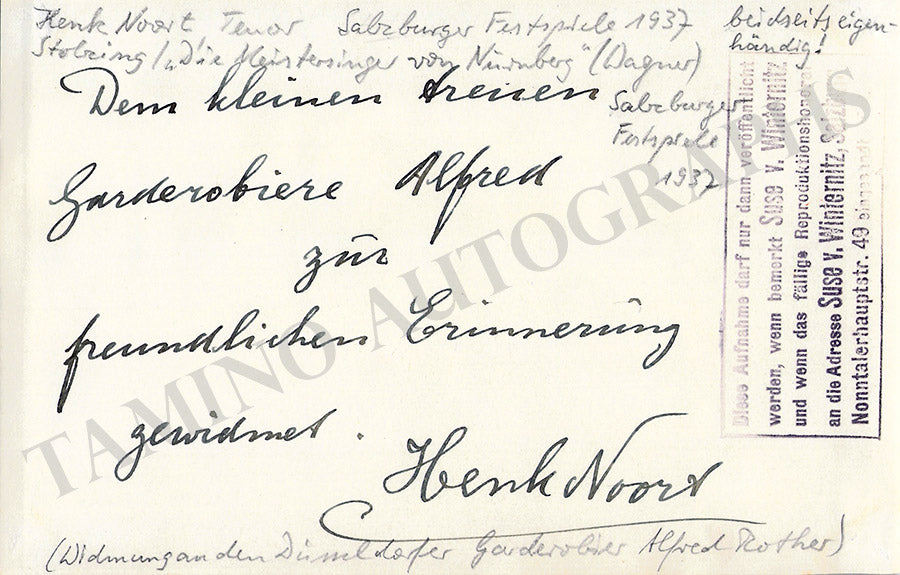 Henk Noort, Tenor Salzburger Festspiele 1937
beidseits eigen-
händig!
Stolzing / „Die Meistersinger von Nürnberg" (Wagner)
Salzburger
Festspiele
1937
Dem kleinen treuen
Garderobiere Alfred
zur
freundlichen Erinnerung
gewidmet.
Henk Noort
(Widmung an den Düsseldorfer Garderobier Alfred Rother)
Diese Aufnahme darf nur dann veröffentlicht
werden, wenn bemerkt Suse v. Winternitz
und wenn das fällige Reproduktionshonorar
an die Adresse Suse v. Winternitz, Salzbg.
Nonntalerhauptstr. 49 eingesandt
TAMINO AUTOGRAPHS